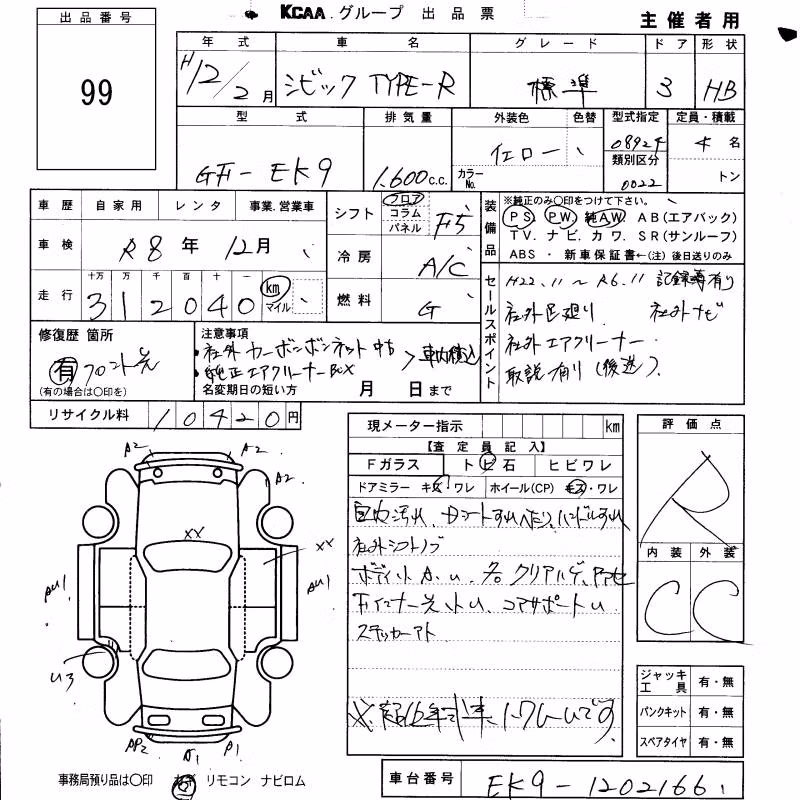 KCAA.グループ 出品票
主催者用
出品番号
99
年式 車名 グレード ドア 形状
H12/2月 シビック TYPE-R 標準 3 HB
型式 排気量 外装色 色替 型式指定 定員・積載
GF-EK9 1,600c.c. イエロー カラーNo. 08924 4名
類別区分 0022 トン
車歴 自家用 レンタ 事業.営業車
車検 R8年 12月
走行 十万 万 千 百 十 一
312040 km マイル
シフト フロア コラム パネル F5
冷房 A/C
燃料 G
装備品 ※純正のみ〇印をつけて下さい。
PS PW 純AW AB(エアバック)
TV. ナビ. カワ. SR(サンルーフ)
ABS ・ 新車保証書←(注)後日送りのみ
セールスポイント
H22.11～R6.11 記録簿有り
社外足廻り 社外ナビ
社外エアクリーナー
取説有り(後送)
修復歴 箇所
有 フロント先
(有の場合は〇印を)
注意事項
・社外カーボンボンネット中古
・純正エアクリーナーBOX
車内積込
名変期日の短い方 月 日まで
リサイクル料 10420円
現メーター指示 km
【査定員記入】
Fガラス トビ石 ヒビワレ
ドアミラー キズ・ワレ ホイール(CP) キズ・ワレ
社外シフトノブ
ステッカーアト
評価点
R
内装 外装
C C
ジャッキ工具 有・無
パンクキット 有・無
スペアタイヤ 有・無
A2 A2
A2
XX
XX
AU1 AU1
U3
AP2 A1 P1
事務局預り品は〇印 リモコン ナビロム
車台番号 EK9-1202166